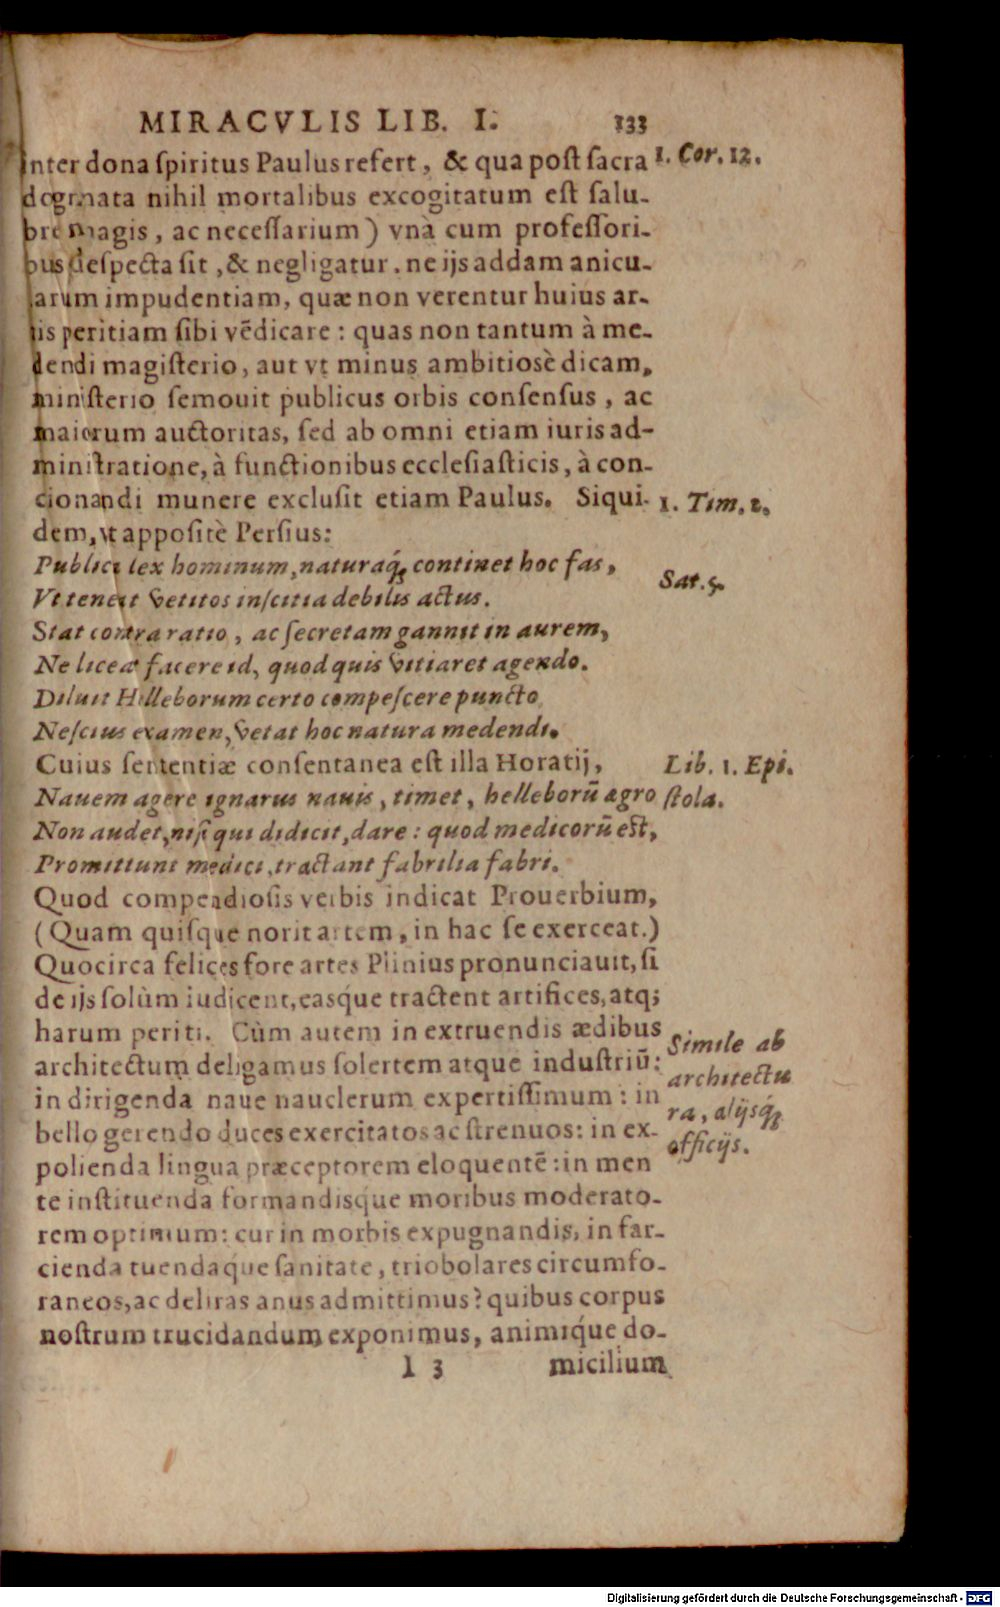 MIRACVLIS LIB. I. 133
inter dona spiritus Paulus refert, & qua post sacra 1. Cor. 12.
dogmata nihil mortalibus excogitatum est salu-
bre magis, ac necessarium) vnà cum professori-
bus despecta sit, & negligatur. ne ijs addam anicu-
larum impudentiam, quæ non verentur huius ar-
tis peritiam sibi vēdicare: quas non tantum à me-
dendi magisterio, aut vt minus ambitiosè dicam,
ministerio semouit publicus orbis consensus, ac
maiorum auctoritas, sed ab omni etiam iuris ad-
ministratione, à functionibus ecclesiasticis, à con-
cionandi munere exclusit etiam Paulus. Siqui- 1. Tim. 2.
dem, vt appositè Persius:
Publica lex hominum, naturaq́; continet hoc fas, Sat. 5.
Vt teneat vetitos inscitia debilis actus.
Stat contra ratio, ac secretam gannit in aurem,
Ne liceat facere id, quod quis vitiaret agendo.
Diluit Helleborum certo compescere puncto
Nescius examen, vetat hoc natura medendi.
Cuius sententiæ consentanea est illa Horatij, Lib. 1. Epi.
Nauem agere ignarus nauis, timet, helleborū ægro stola.
Non audet, nisi qui didicit, dare: quod medicorū est,
Promittunt medici, tractant fabrilia fabri.
Quod compendiosis verbis indicat Prouerbium,
(Quam quisque norit artem, in hac se exerceat.)
Quocirca felices fore artes Plinius pronunciauit, si
de ijs solùm iudicent, easq́ue tractent artifices, atq;
harum periti. Cùm autem in extruendis ædibus Simile ab
architectum deligamus solertem atque industriū: architectu
in dirigenda naue nauclerum expertissimum: in ra, alijsq́;
bello gerendo duces exercitatos ac strenuos: in ex- officijs.
polienda lingua præceptorem eloquentē: in men
te instituenda formandisque moribus moderato-
rem optimum: cur in morbis expugnandis, in sar-
cienda tuendaq́ue sanitate, triobolares circumfo-
raneos, ac deliras anus admittimus? quibus corpus
nostrum trucidandum exponimus, animiq́ue do-
l 3 micilium
Digitalisierung gefördert durch die Deutsche Forschungsgemeinschaft - DFG